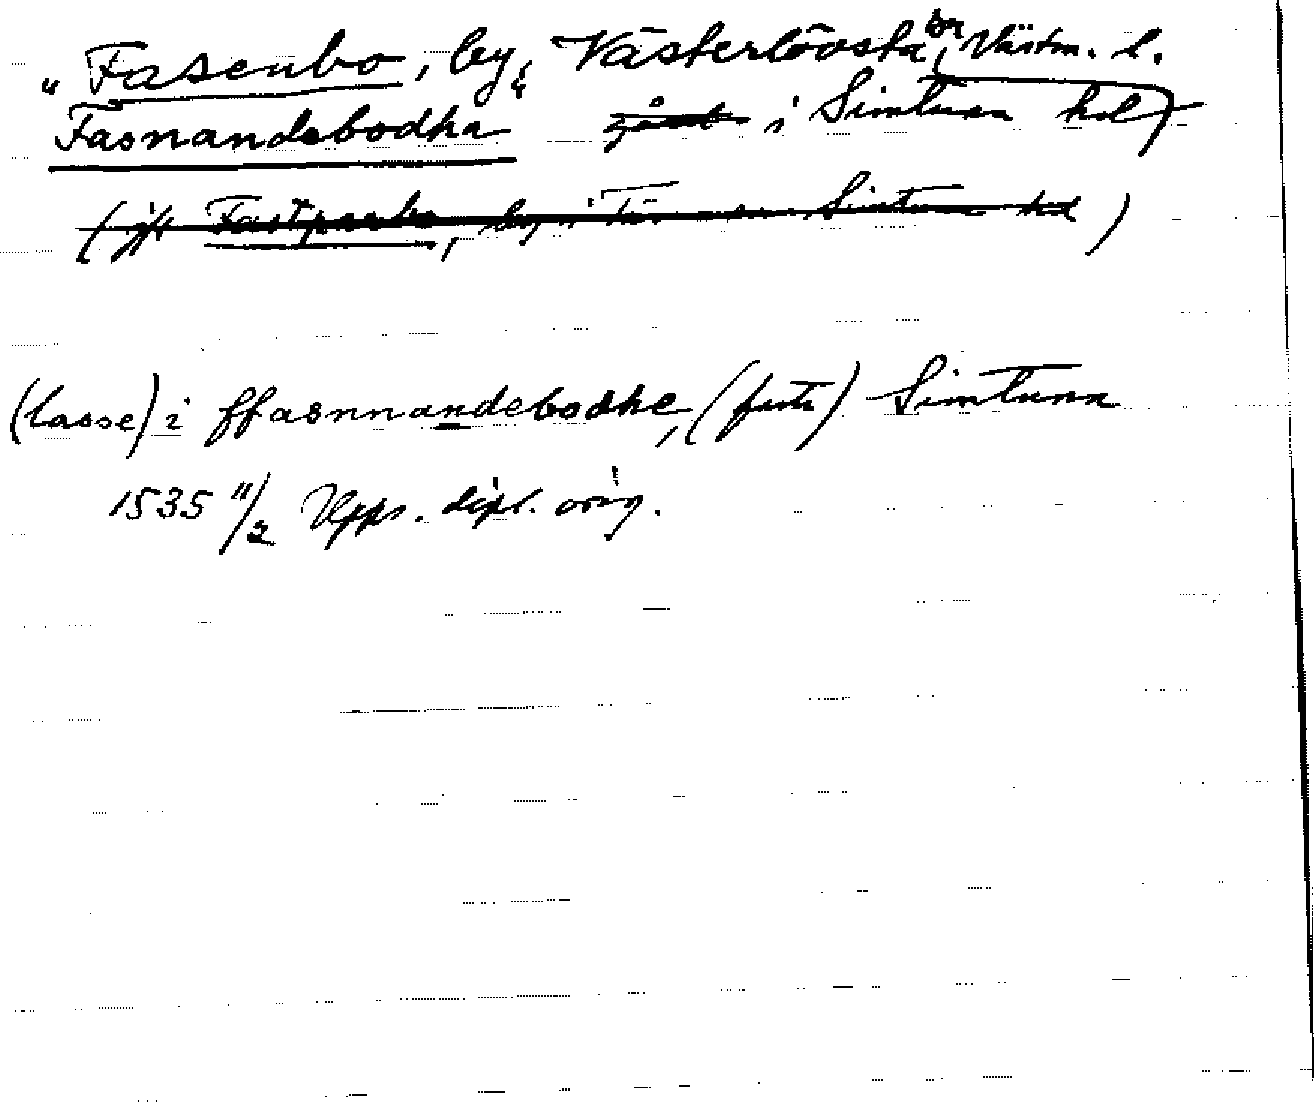 "Fasenbo, by, Västerlövsta sn, Västm. l.
Fasnandebodha gård i Simtuna hd)
(jfr Fastparbo, by i Simtuna hd)
(lasse) i ffasnnandebodhe, (prti) Simtuna
1535 11/2 Upps. dipl. orig.